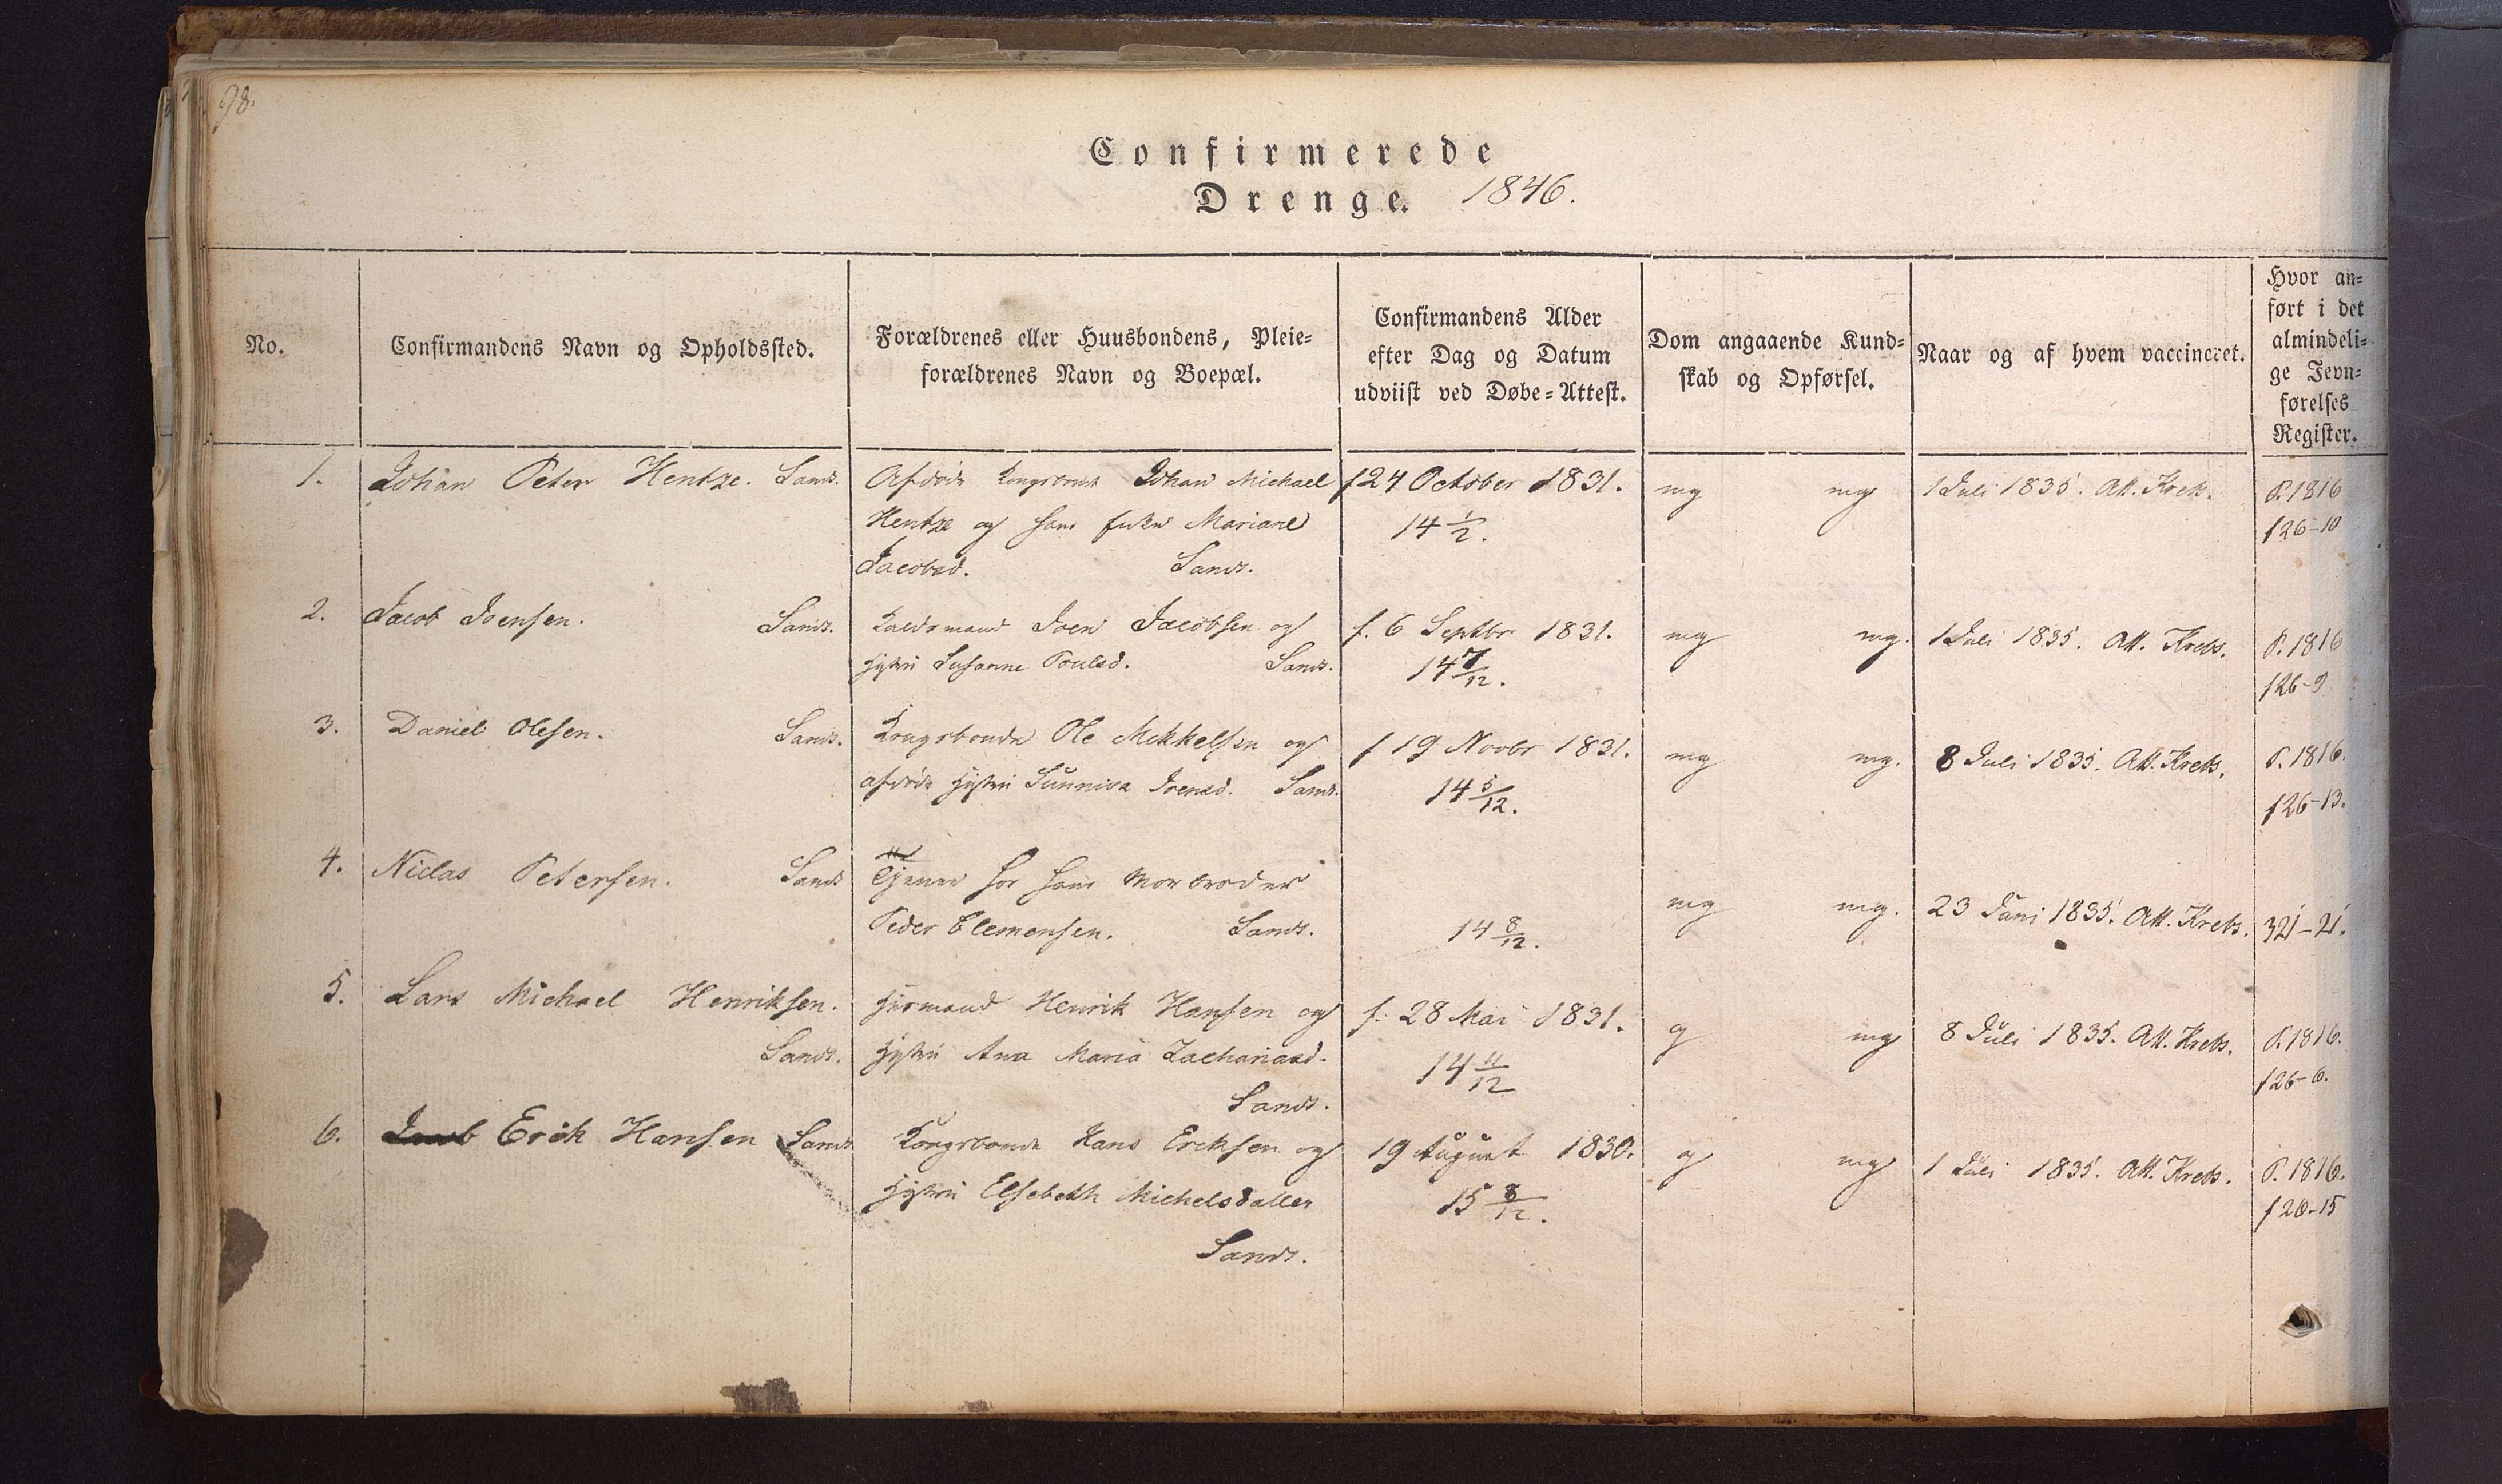 98.
Confirmerede
Drenge. 1846.
No.
Confirmandens Navn og Opholdssted.
Forældrenes eller Huusbondens, Pleie=
forældrenes Navn og Boepæl.
Confirmandens Alder
efter Dag og Datum
udviist ved Døbe=Attest.
Dom angaaende Kund=
skab og Opførsel.
Naar og af hvem vaccineret.
Hvor an=
ført i det
almindeli=
ge Jevn=
førelses
Register.
1. Johan Peter Hentze. Sands. Afdøde Kongsbonde Johan Michael f 24 October 1831. mg mg 1 Juli 1835. Att. Krebs. P. 1816
Hentze og hans Enke Mariane 14 1/2. f 26-10
Jacobsd. Sands.
2. Jacob Joensen. Sands. Joen Jacobsen og f. 6 Septbr 1831. mg mg. 1 Juli 1835. Att. Krebs. P. 1816
Hustru Susanne Poulsd. Sands. 14 7/12. f 26-9
3. Daniel Olesen. Sands. Kongsbonde Ole Mikkelsen og f 19 Novbr 1831. mg mg. 8 Juli 1835. Att. Krebs. P. 1816.
afdøde Hustru Sunniva Joensd. Sands. 14 5/12. f 26-13.
4. Niclas Petersen. Sands Tjener hos hans Morbroder mg mg. 23 Juni 1835. Att. Krebs. 321-21.
Peder Clemensen. Sands. 14 8/12.
5. Lars Michael Henriksen. Huusmand Henrik Hansen og f. 28 Mai 1831. g mg 8 Juli 1835. Att. Krebs. P. 1816.
Sands. Hustru Ana Maria Zachariasd. 14 11/12 f 26-6.
Sands.
6. Erik Hansen Sands Kongsbonde Hans Ericksen og 19 August 1830. g mg 1 Juli 1835. Att. Krebs. P. 1816.
Hustru Elsebeth Michelsdatter 15 8/12. f 26-15
Sands.